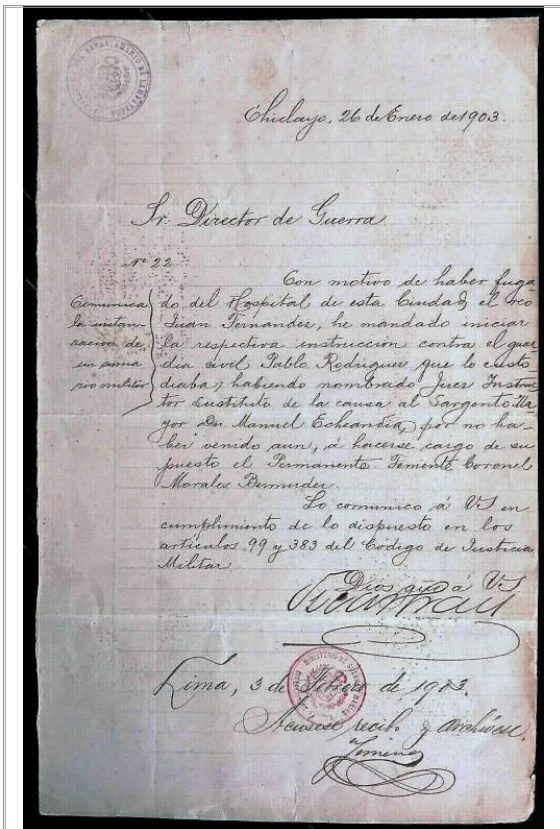 Chiclayo, 26 de Enero de 1903.
Sr. Director de Guerra
Nº 22
Con motivo de haber fuga
do del Hospital de esta Ciudad, el reo
Juan Fernandez, he mandado iniciar
la respectiva instruccion contra el guar
dia civil Pablo Rodriguez que lo custo
diaba, habiendo nombrado Juez Instruc
tor sustituto de la causa al Sargento Ma
yor Dn. Manuel Echeandía, por no ha-
ber venido aun, á hacerse cargo de su
puesto el Permanente Temente Coronel
Morales Bermudez.
Comunica
la instau
racion de
un suma
rio militar
Lo comunico á US en
cumplimiento de lo dispuesto en los
articulos 99 y 383 del Código de Justicia
Militar.
Dios gue á US
Lima, 3 de Febrero de 1903.
Acúsese recibo y archívese.